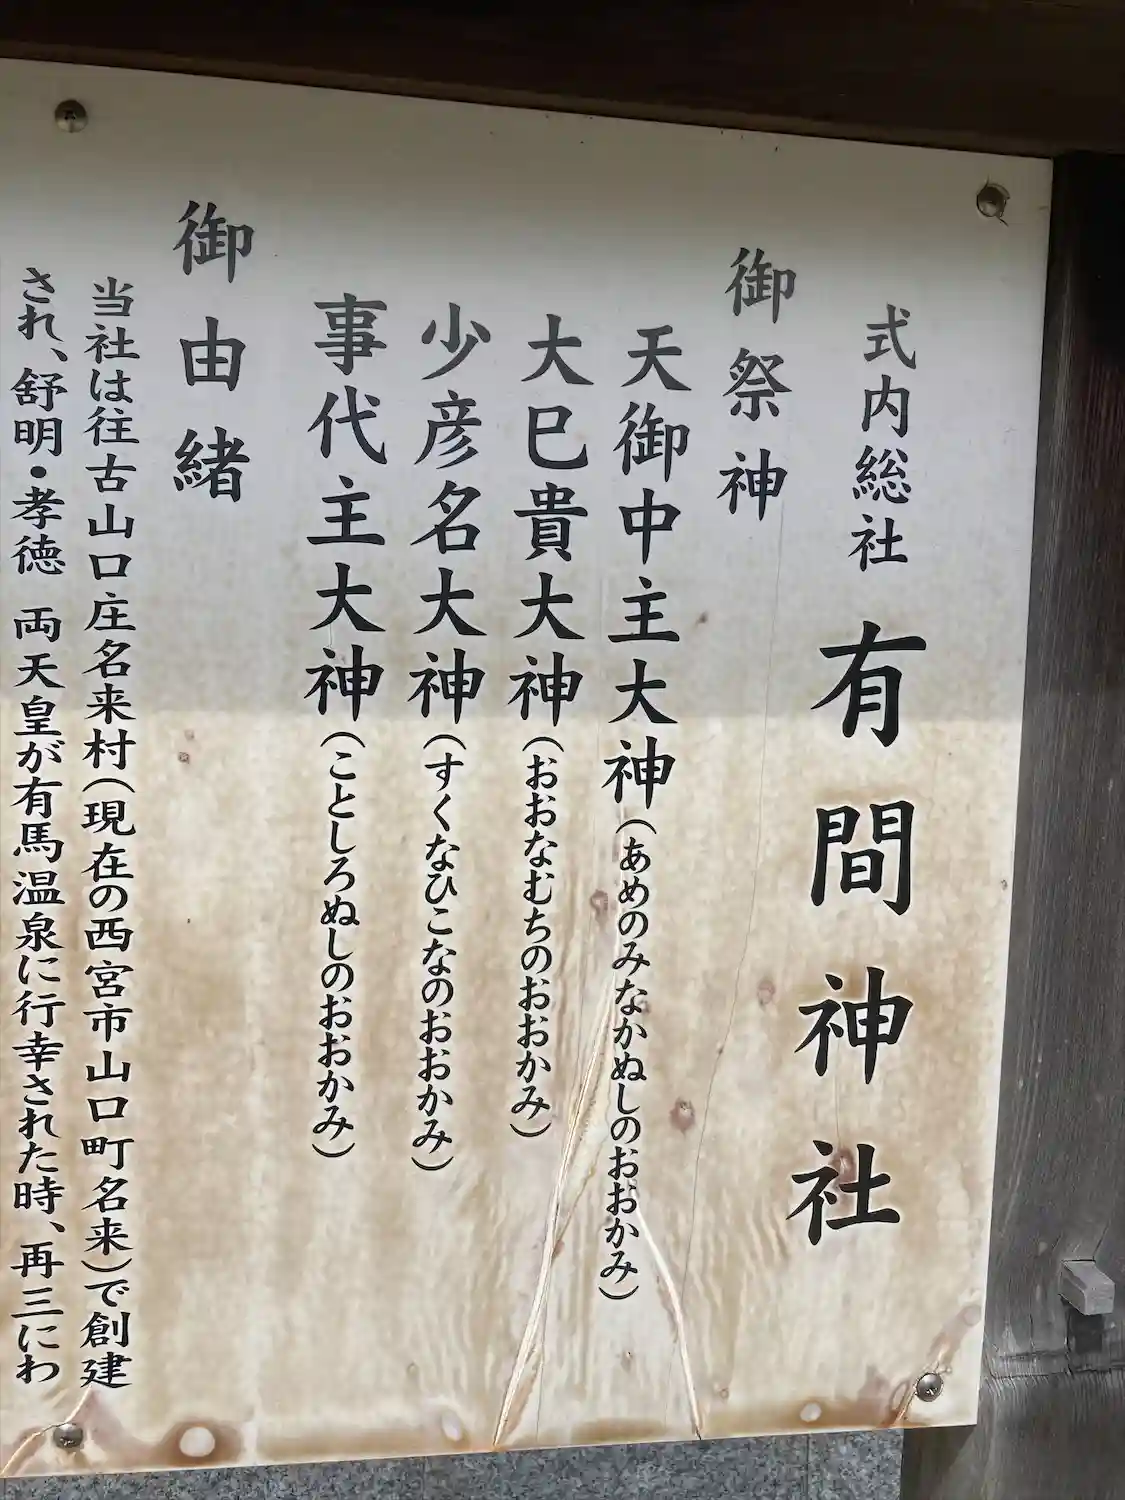 式内総社 有間神社
御祭神
天御中主大神(あめのみなかぬしのおおかみ)
大巳貴大神(おおなむちのおおかみ)
少彦名大神(すくなひこなのおおかみ)
事代主大神(ことしろぬしのおおかみ)
御由緒
当社は往古山口庄名来村(現在の西宮市山口町名来)で創建
され、舒明・孝徳 両天皇が有馬温泉に行幸された時、再三にわ